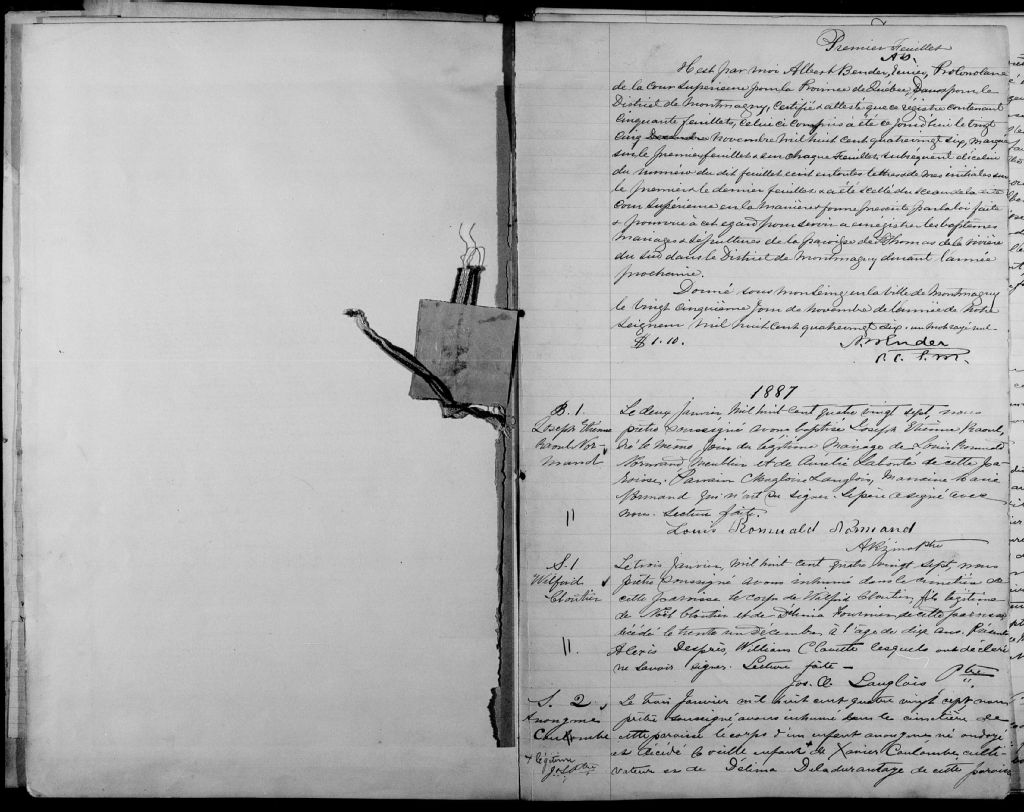 Premier Feuillet
A.B.
Il est par moi Albert Bender, Ecuier, Protonotaire
de la Cour Supérieure pour la Province de Québec, Dans & pour le
District de Montmagny, certifié & attesté que ce régistre contenant
cinquante feuillets, celui ci compris a été ce jourd'hui le vingt
cinq Decembre Novembre mil huit cent quatrevingt six, marqué
sur le premier feuillet & sur chaque Feuillet subséquent d'icelui
du numéro du dit feuillet écrit en toutes lettres & de mes initiales sur
le premier & le dernier feuillet & a été scellé du sceau de la
Cour Supérieure en la manière & forme prescrite par la loi faite
& pourvue à cet égard pour servir à enrégistrer les baptêmes
mariages & sépultures de la paroisse de St Thomas de la rivière
du sud dans le District de Montmagny durant l'année
prochaine.
Donné sous mon seing en la ville de Montmagny
le vingt cinquième jour de novembre de l'année de Notre
Seigneur mil huit cent quatrevingt six. un mot rayé nul
$1.10.
A. Bender
P.C.S.M.
1887
B. 1.
Joseph Etienne
Raoul Nor-
mand
Le deux Janvier, mil huit cent quatre vingt sept, nous
prêtre soussigné avons baptisé Joseph Etienne Raoul,
né le même jour du légitime mariage de Louis Romuald
Normand Meublier et de Aurélie Laberté de cette pa-
roisse. Parrain Magloire Langlois, Marraine Marie
Normand qui n'ont su signer. Le père a signé avec
nous. Lecture faite.
Louis Romuald Normand
Ptre
S. 1
Wilfrid
Cloutier
Le trois Janvier, mil huit cent quatre vingt sept, nous
prêtre soussigné avons inhumé dans le cimetière de
cette paroisse le corps de Wilfrid Cloutier, fils légitime
de Noël Cloutier et de Délima Fournier de cette paroisse
décédé le trente un décembre, à l'âge de dix ans. Présents
Alexis Després, William Clavette lesquels ont déclaré
ne savoir signer. Lecture faite —
Jos. O. Langlois Ptre
S. 2
Anonyme
Coulombe
+ légitime
Le trois Janvier mil huit cent quatre vingt sept nous
prêtre soussigné avons inhumé dans le cimetière de
cette paroisse le corps d'un enfant anonyme né ondoyé
et décédé la veille enfant + de Xavier Coulombe culti-
vateur et de Délima Deladurantaye de cette paroisse